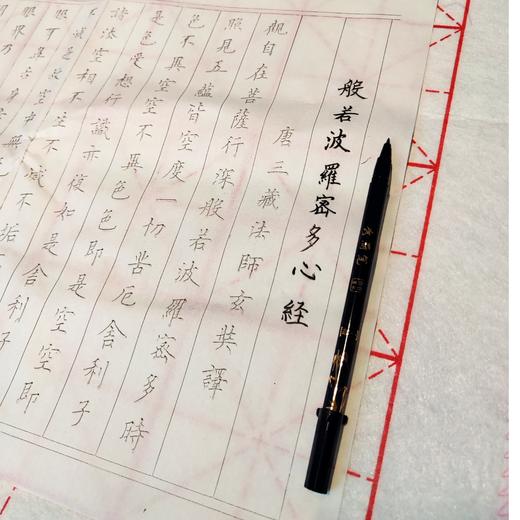 般若波羅密多心経
唐三藏法師玄奘譯
觀自在菩薩行深般若波羅密多時
照見五蘊皆空度一切苦厄舍利子
色不異空空不異色色即是空空即
是色受想行識亦復如是舍利子
諸法空相不生不滅不垢
不減是故空中無